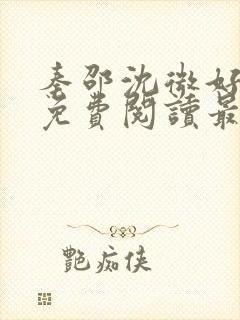 秦邵沈微好
免費閱讀最
艷痴侠